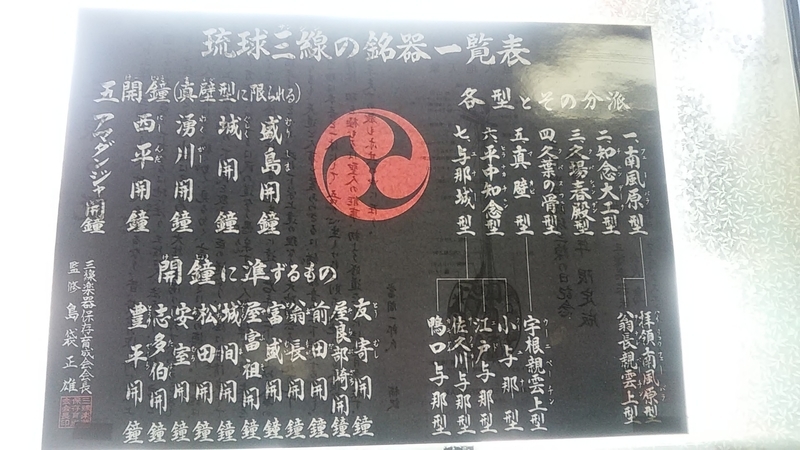 琉球三線の銘器一覧表
各型とその分派
一南風原型
二知念大工型
三久場春殿型
四久葉の骨型
五真壁型
六平中知念型
七与那城型
拝領南風原型
翁長親雲上型
宇根親雲上型
小与那型
江戸与那型
佐久川与那型
鴨口与那型
五開鐘(真壁型に限られる)
盛島開鐘
城開鐘
湧川開鐘
西平開鐘
アマダンジャ開鐘
開鐘に準ずるもの
友寄開鐘
屋良部崎開鐘
前田開鐘
翁長開鐘
富盛開鐘
屋富祖開鐘
城間開鐘
松田開鐘
安室開鐘
志多伯開鐘
豊平開鐘
三線楽器保存育成会会長
監修島袋正雄